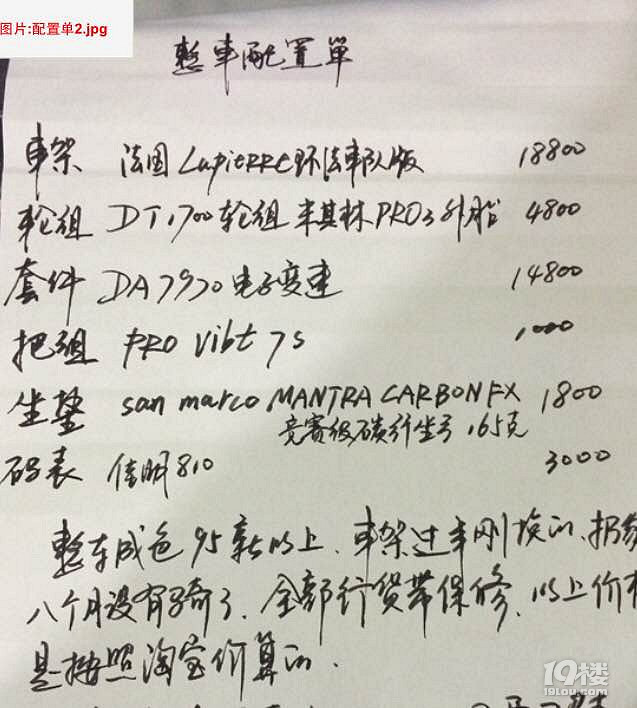 图片:配置单2.jpg
整車配置單
車架 法国 Lapierre环法車队版 18800
轮组 DT1700轮组 米其林PRO3外胎 4800
套件 DA7970电子变速 14800
把组 PRO Vibt 7s 1000
坐垫 san marco MANTRA CARBON FX 1800
竞赛级碳纤坐弓 165克
码表 佳明810 3000
整车成色95新以上、車架过年刚换的、扔家
八个月没有骑了、全部行货带保修、以上价格
是按照淘宝价算的、
19楼
19lou.com